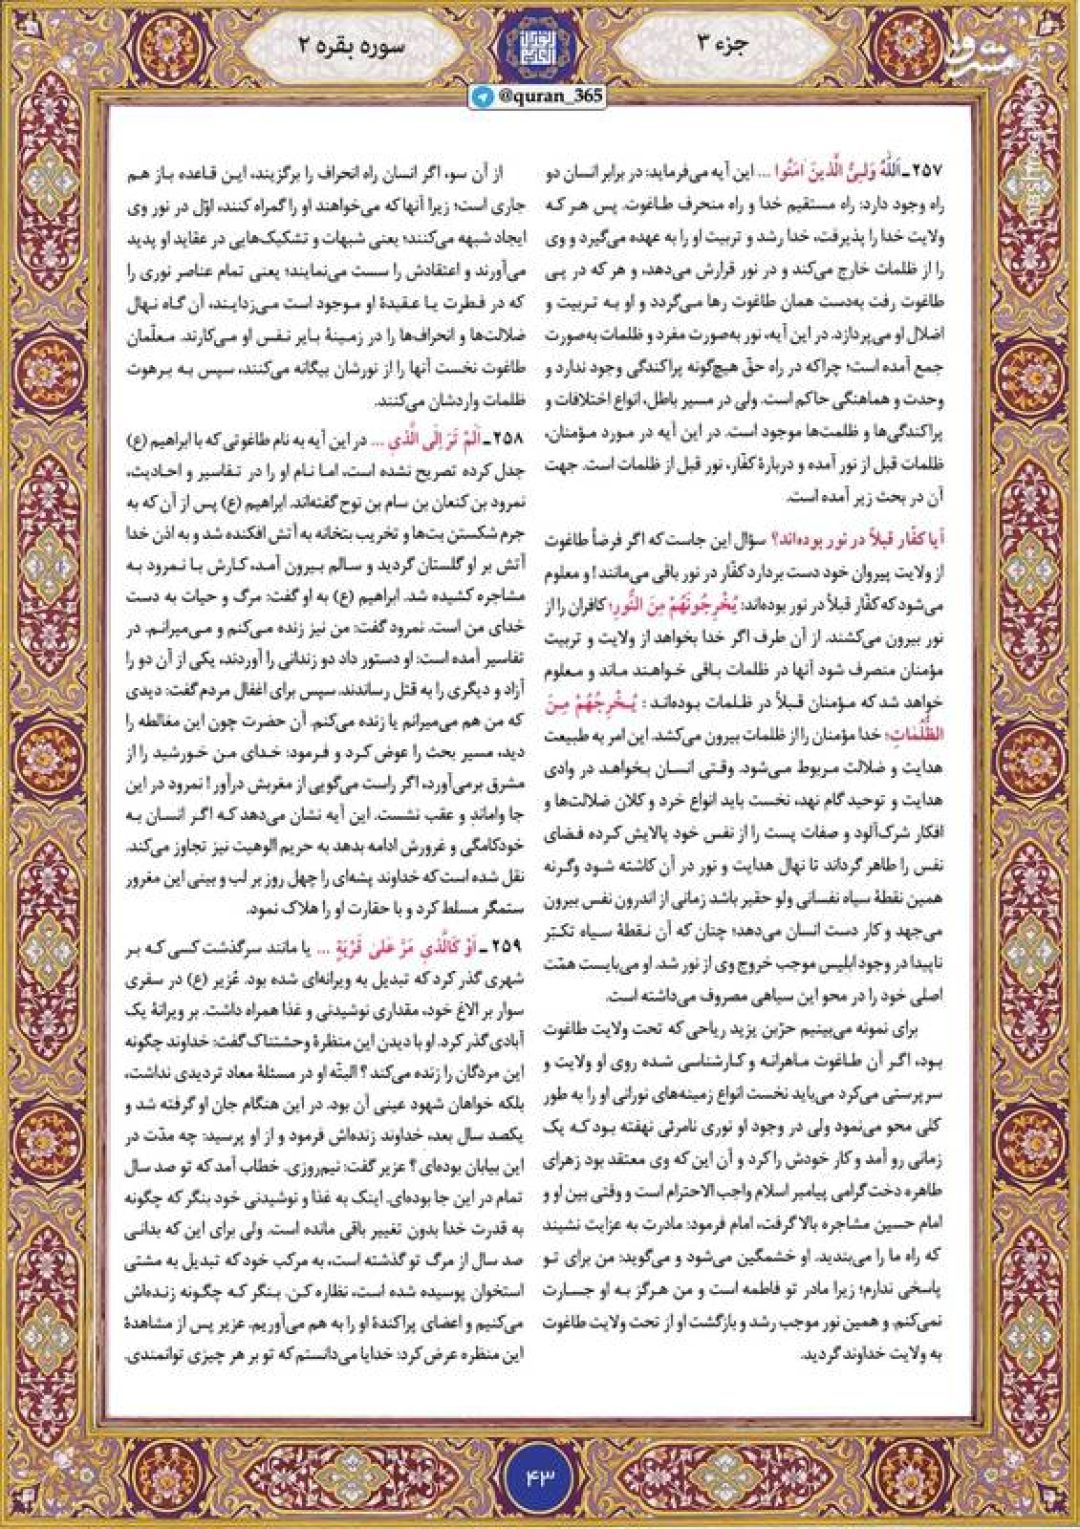 جزء ۳
سوره بقره ۲
مشرق
mashreghnews.ir
@quran_365
۲۵۷ـ اَللّٰهُ وَلِیُّ الَّذینَ آمَنُوا ... این آیه می‌فرماید: در برابر انسان دو
راه وجود دارد: راه مستقیم خدا و راه منحرف طاغوت. پس هر که
ولایت خدا را پذیرفت، خدا رشد و تربیت او را به عهده می‌گیرد و وی
را از ظلمات خارج می‌کند و در نور قرارش می‌دهد، و هر که در پی
طاغوت رفت به‌دست همان طاغوت رها می‌گردد و او به تربیت و
اضلال او می‌پردازد. در این آیه، نور به‌صورت مفرد و ظلمات به‌صورت
جمع آمده است؛ چراکه در راه حقّ هیچ‌گونه پراکندگی وجود ندارد و
وحدت و هماهنگی حاکم است. ولی در مسیر باطل، انواع اختلافات و
پراکندگی‌ها و ظلمت‌ها موجود است. در این آیه در مورد مؤمنان،
ظلمات قبل از نور آمده و دربارهٔ کفّار، نور قبل از ظلمات است. جهت
آن در بحث زیر آمده است.
آیا کفّار قبلاً در نور بوده‌اند؟ سؤال این جاست که اگر فرضاً طاغوت
از ولایت پیروان خود دست بردارد کفّار در نور باقی می‌مانند! و معلوم
می‌شود که کفّار قبلاً در نور بوده‌اند: یُخْرِجُونَهُمْ مِنَ النُّورِ؛ کافران را از
نور بیرون می‌کشند. از آن طرف اگر خدا بخواهد از ولایت و تربیت
مؤمنان منصرف شود آنها در ظلمات باقی خواهند ماند و معلوم
خواهد شد که مؤمنان قبلاً در ظلمات بوده‌اند : یُخْرِجُهُمْ مِنَ
الظُّلُمٰاتِ؛ خدا مؤمنان را از ظلمات بیرون می‌کشد. این امر به طبیعت
هدایت و ضلالت مربوط می‌شود. وقتی انسان بخواهد در وادی
هدایت و توحید گام نهد، نخست باید انواع خرد و کلان ضلالت‌ها و
افکار شرک‌آلود و صفات پست را از نفس خود پالایش کرده فضای
نفس را طاهر گرداند تا نهال هدایت و نور در آن کاشته شود وگرنه
همین نقطهٔ سیاه نفسانی ولو حقیر باشد زمانی از اندرون نفس بیرون
می‌جهد و کار دست انسان می‌دهد؛ چنان که آن نقطهٔ سیاه تکبّر
ناپیدا در وجود ابلیس موجب خروج وی از نور شد. او می‌بایست همّت
اصلی خود را در محو این سیاهی مصروف می‌داشته است.
برای نمونه می‌بینیم حرّبن یزید ریاحی که تحت ولایت طاغوت
بود، اگر آن طاغوت ماهرانه و کارشناسی شده روی او ولایت و
سرپرستی می‌کرد می‌باید نخست انواع زمینه‌های نورانی او را به طور
کلی محو می‌نمود ولی در وجود او نوری نامرئی نهفته بود که یک
زمانی رو آمد و کار خودش را کرد و آن این که وی معتقد بود زهرای
طاهره دخت گرامی پیامبر اسلام واجب الاحترام است و وقتی بین او و
امام حسین مشاجره بالا گرفت، امام فرمود: مادرت به عزایت نشیند
که راه ما را می‌بندید. او خشمگین می‌شود و می‌گوید: من برای تو
پاسخی ندارم؛ زیرا مادر تو فاطمه است و من هرگز به او جسارت
نمی‌کنم. و همین نور موجب رشد و بازگشت او از تحت ولایت طاغوت
به ولایت خداوند گردید.
از آن سو، اگر انسان راه انحراف را برگزیند، این قاعده باز هم
جاری است؛ زیرا آنها که می‌خواهند او را گمراه کنند، اوّل در نور وی
ایجاد شبهه می‌کنند؛ یعنی شبهات و تشکیک‌هایی در عقاید او پدید
می‌آورند و اعتقادش را سست می‌نمایند؛ یعنی تمام عناصر نوری را
که در فطرت یا عقیدهٔ او موجود است می‌زدایند، آن گاه نهال
ضلالت‌ها و انحراف‌ها را در زمینهٔ بایر نفس او می‌کارند. معلّمان
طاغوت نخست آنها را از نورشان بیگانه می‌کنند، سپس به برهوت
ظلمات واردشان می‌کنند.
۲۵۸ـ اَلَمْ تَرَ اِلَی الَّذی ... در این آیه به نام طاغوتی که با ابراهیم (ع)
جدل کرده تصریح نشده است، اما نام او را در تفاسیر و احادیث،
نمرود بن کنعان بن سام بن نوح گفته‌اند. ابراهیم (ع) پس از آن که به
جرم شکستن بت‌ها و تخریب بتخانه به آتش افکنده شد و به اذن خدا
آتش بر او گلستان گردید و سالم بیرون آمد، کارش با نمرود به
مشاجره کشیده شد. ابراهیم (ع) به او گفت: مرگ و حیات به دست
خدای من است. نمرود گفت: من نیز زنده می‌کنم و می‌میرانم. در
تفاسیر آمده است: او دستور داد دو زندانی را آوردند، یکی از آن دو را
آزاد و دیگری را به قتل رساندند. سپس برای اغفال مردم گفت: دیدی
که من هم می‌میرانم یا زنده می‌کنم. آن حضرت چون این مغالطه را
دید، مسیر بحث را عوض کرد و فرمود: خدای من خورشید را از
مشرق برمی‌آورد، اگر راست می‌گویی از مغربش درآور! نمرود در این
جا واماند و عقب نشست. این آیه نشان می‌دهد که اگر انسان به
خودکامگی و غرورش ادامه بدهد به حریم الوهیت نیز تجاوز می‌کند.
نقل شده است که خداوند پشه‌ای را چهل روز بر لب و بینی این مغرور
ستمگر مسلط کرد و با حقارت او را هلاک نمود.
۲۵۹ـ اَوْ کَالَّذی مَرَّ عَلیٰ قَرْیَةٍ ... یا مانند سرگذشت کسی که بر
شهری گذر کرد که تبدیل به ویرانه‌ای شده بود. عُزیر (ع) در سفری
سوار بر الاغ خود، مقداری نوشیدنی و غذا همراه داشت. بر ویرانهٔ یک
آبادی گذر کرد. او با دیدن این منظرهٔ وحشتناک گفت: خداوند چگونه
این مردگان را زنده می‌کند؟ البتّه او در مسئلهٔ معاد تردیدی نداشت،
بلکه خواهان شهود عینی آن بود. در این هنگام جان او گرفته شد و
یکصد سال بعد، خداوند زنده‌اش فرمود و از او پرسید: چه مدّت در
این بیابان بوده‌ای؟ عزیر گفت: نیم‌روزی. خطاب آمد که تو صد سال
تمام در این جا بوده‌ای. اینک به غذا و نوشیدنی خود بنگر که چگونه
به قدرت خدا بدون تغییر باقی مانده است. ولی برای این که بدانی
صد سال از مرگ تو گذشته است، به مرکب خود که تبدیل به مشتی
استخوان پوسیده شده است، نظاره کن. بنگر که چگونه زنده‌اش
می‌کنیم و اعضای پراکندهٔ او را به هم می‌آوریم. عزیر پس از مشاهدهٔ
این منظره عرض کرد: خدایا می‌دانستم که تو بر هر چیزی توانمندی.
۴۳